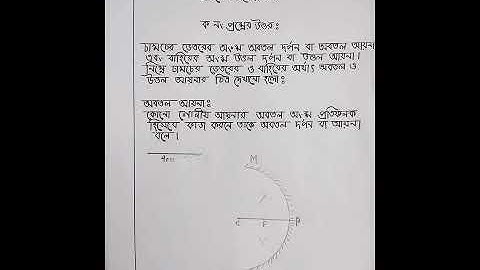 ক নং প্রশ্নের উত্তরঃ
চামচের ভেতরের অংশ অবতল দর্পন বা অবতল আয়না
এবং বাহিরের অংশ উত্তল দর্পন বা উত্তল আয়না।
নিম্নে চামচের ভেতরের ও বাহিরের অর্থাৎ অবতল ও
উত্তল আয়নার চিত্র দেখানো হলোঃ
অবতল আয়নাঃ
কোনো গোলীয় আয়নার অবতল অংশ প্রতিফলক
হিসেবে কাজ করলে তাকে অবতল দর্পন বা আয়না
বলে।
M
C F P